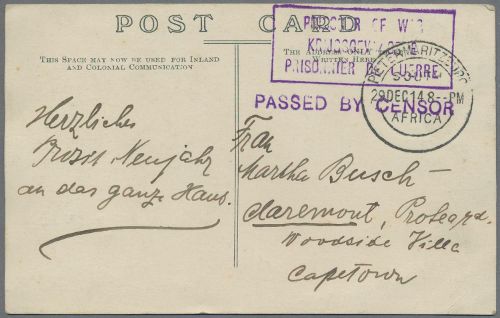 POST CARD
THIS SPACE MAY NOW BE USED FOR INLAND
AND COLONIAL COMMUNICATION
THE ADDRESS ONLY
WRITTEN HERE
PRISONER OF WAR
KRIJGSGEVANGENE
PRISONNIER DE GUERRE
PASSED BY CENSOR
PIETERMARITZBURG
SOUTH
29 DEC 14 8 - PM
AFRICA
Herzliches
Prosit Neujahr
an das ganze Haus.
Frau
Martha Busch —
Claremont, Protea rd.
Woodside Villa
Capetown